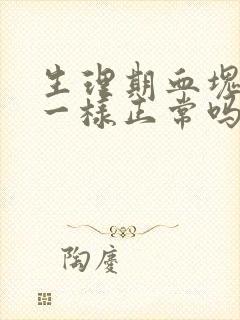 生理期血塊
一樣正常吗
陶慶